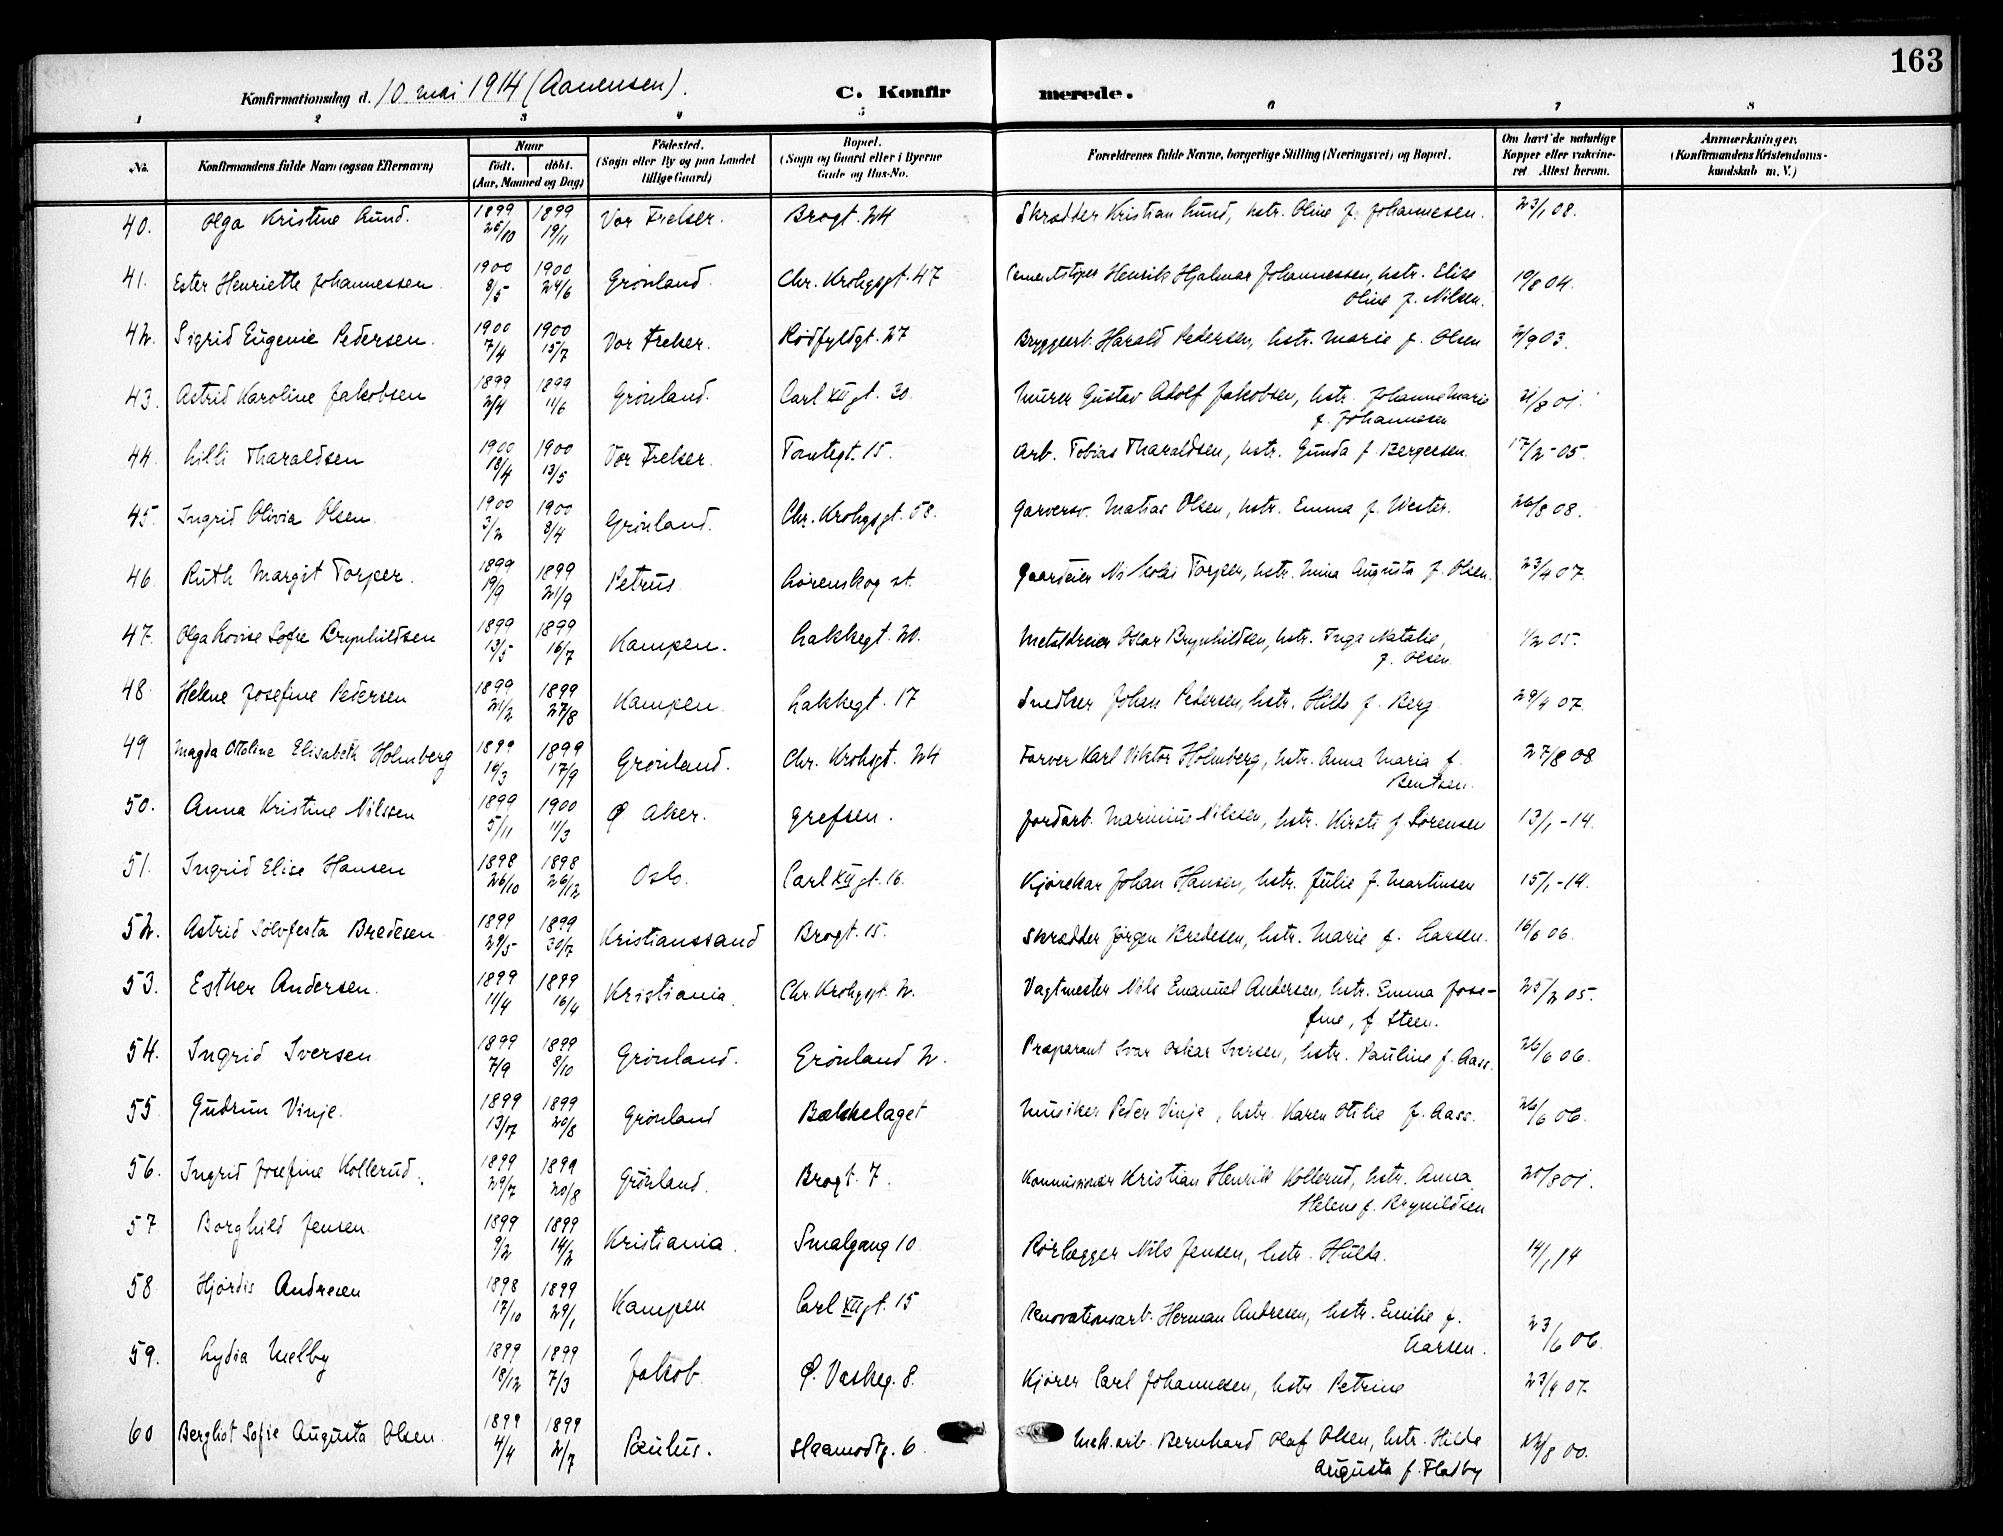 163
Konfirmationsdag d. 10 mai 1914 (Aanensen).
C. Konfirmerede.
1 2 3 4 5 6 7 8
No. Konfirmandens fulde Navn (ogsaa Efternavn) Naar født. døbt. (Aar, Maaned og Dag) Fødested. (Sogn eller By og paa Landet tillige Gaard) Bopæl. (Sogn og Gaard eller i Byerne Gade og Hus-No. Forældrenes fulde Navne, borgerlige Stilling (Næringsvei) og Bopæl. Om havt de naturlige Kopper eller vakcineret Attest herom. Anmærkninger. (Konfirmandens Kristendomskundskab m. V.)
40. Olga Kristine Lund. 1899 26/10 1899 19/11 Vor Frelser. Brogt. 24 Skrædder Kristian Lund, hstr. Oline f. Johannesen. 23/1 08.
41. Ester Henriette Johannessen. 1900 8/5 1900 24/6 Grønland. Chr. Krohgsgt. 47 Cementstøper Henrik Hjalmar Johannessen, hstr. Elise
Oline f. Nilsen. 19/8 04.
42. Sigrid Eugenie Pedersen. 1900 7/4 1900 15/7 Vor Frelser. Rødfyldgt. 27 Bryggearb. Harald Pedersen, hstr. Marie f. Olsen 2/9 03.
43. Astrid Karoline Jakobsen 1899 2/4 1899 11/6 Grønland. Carl XII gt. 30. Murer Gustav Adolf Jakobsen, hstr. Johanne Marie
f. Johannesen 21/8 01.
44. Lilli Tharaldsen 1900 18/4 1900 13/5 Vor Frelser. Tomtegt. 15. Arb. Tobias Tharaldsen, hstr. Gunda f. Bergersen. 17/2-05.
45. Ingrid Olivia Olsen. 1900 3/2 1900 8/4 Grønland. Chr. Krohgsgt. 58. Garversv. Matias Olsen, hstr. Emma f. Wester. 26/8 08.
46. Ruth Margit Torper. 1899 19/9 1899 21/9 Petrus. Lørenskog st. Gaardeier Nikolai Torper, hstr. Mina Augusta f. Olsen. 23/4 07.
47. Olga Lovise Sofie Brynhildsen 1899 13/5 1899 16/7 Kampen. Lakkegt. 20. Metaldreier Oscar Brynhildsen, hstr. Inga Natalie,
f. Olsen. 1/2 05.
48. Helene Josefine Pedersen 1899 21/2 1899 27/8 Kampen. Lakkegt. 17 Snedker Johan Pedersen, hstr. Hilda f. Berg. 29/4 07.
49 Magda Ottoline Elisabeth Holmberg 1899 16/3 1899 17/9 Grønland. Chr. Krohsgt. 24 Farver Karl Viktor Holmberg, hstr. Anna Maria f.
Bentsen. 27/8 08
50. Anna Kristine Nilssen 1899 5/11 1900 11/3 Ø Aker. Grefsen. Jordarb. Marinius Nilssen, hstr. Kirsti f. Sørensen 13/1-14.
51. Ingrid Elise Hansen 1898 26/10 1898 26/12 Oslo. Carl XII gt. 16. Kjørekar Johan Hansen, hstr. Julie f. Martinsen 15/1-14.
52. Astrid Sølvfesta Bredesen 1899 29/5 1899 30/7 Kristianssand Brogt. 15. Skrædder Jørgen Bredesen, hstr. Marie f. Larsen. 16/6 06.
53. Esther Andersen. 1899 11/4 1899 16/4 Kristiania. Chr. Krohgsgt. 2. Vagtmester Nils Emanuel Andersen, hstr. Emma Jose-
fine, f. Steen. 25/2 05.
54. Ingrid Iversen 1899 7/9 1899 8/10 Grønland. Grønland 2. Præparant Ivar Oskar Iversen, hstr. Pauline f. Aass. 26/6 06.
55 Gudrun Vinje. 1899 13/7 1899 20/8 Grønland Bækkelaget Musiker Peder Vinje, hstr. Karen Otilie f. Aass. 26/6 06.
56. Ingrid Josefine Kollerud. 1899 29/7 1899 20/8 Grønland. Brogt. 7. Kommissionær Kristian Henrik Kollerud, hstr. Anna
Helene f. Brynildsen 20/8 01.
57 Borghild Jensen. 1899 9/2 1899 14/2 Kristiania. Smalgang 10. Rørlægger Nils Jensen, hstr. Hulda. 14/1 14
58 Hjørdis Andresen 1898 17/10 1899 29/1 Kampen Carl XII gt. 15 Renovationsarb. Herman Andresen, hstr. Emilie f.
Larsen. 23/6 06.
59. Lydia Melby 1899 18/12 1899 7/3 Jakob. Ø. Vaskeg. 8. Kjører Carl Johannesen, hstr. Petrine 23/9 07.
60 Bergliot Sofie Augusta Olsen. 1899 4/4 1899 2/7 Paulus. Haamodtg. 6. Mek. arb. Bernhard Olaf Olsen, hstr. Hilda
Augusta f. Fladby 22/8 00.